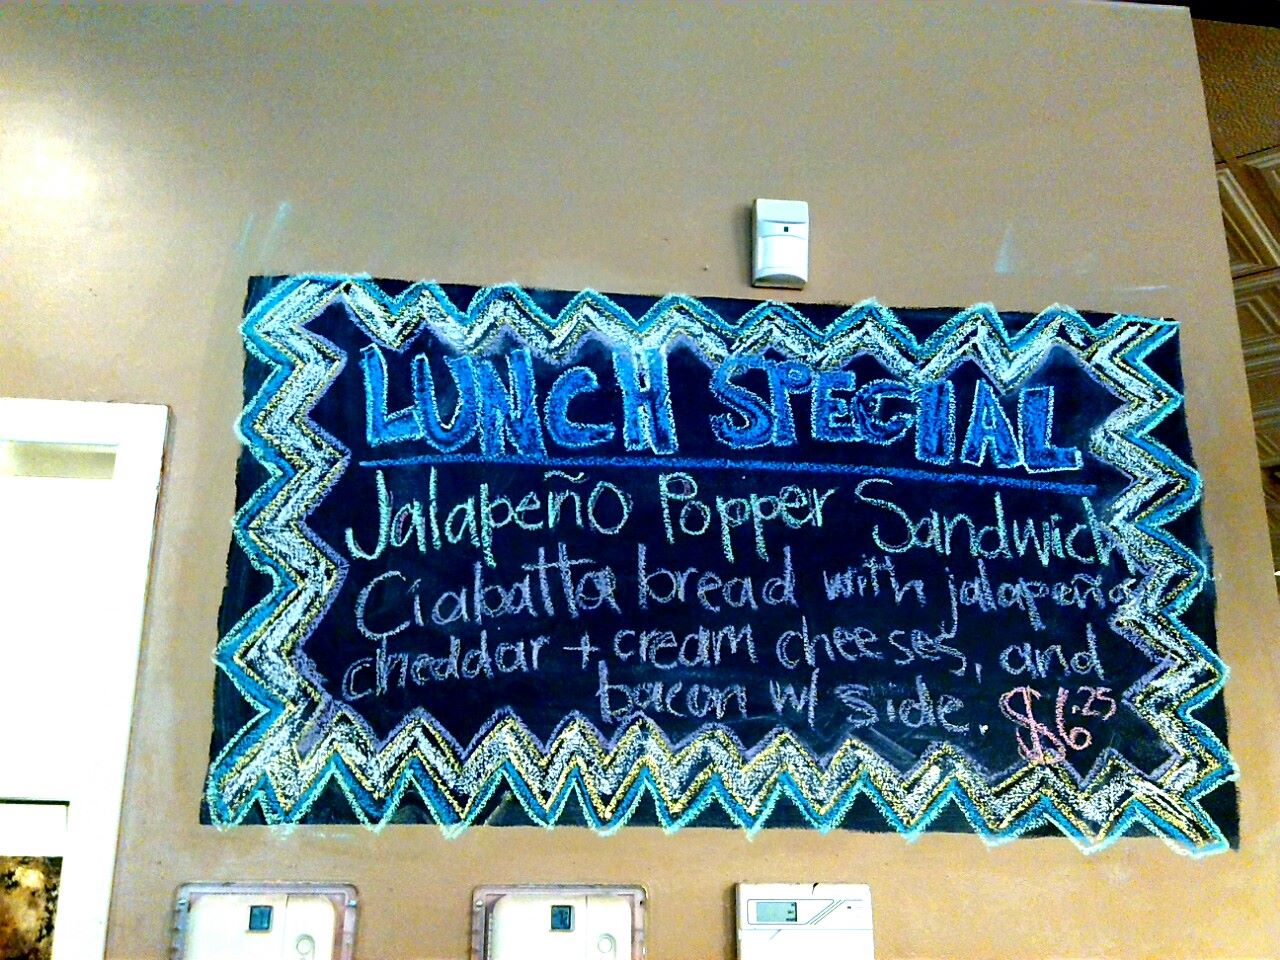 LUNCH SPECIAL
Jalapeño Popper Sandwich
Ciabatta bread with jalapeño
cheddar + cream cheeses, and
bacon w/ side. $6.25